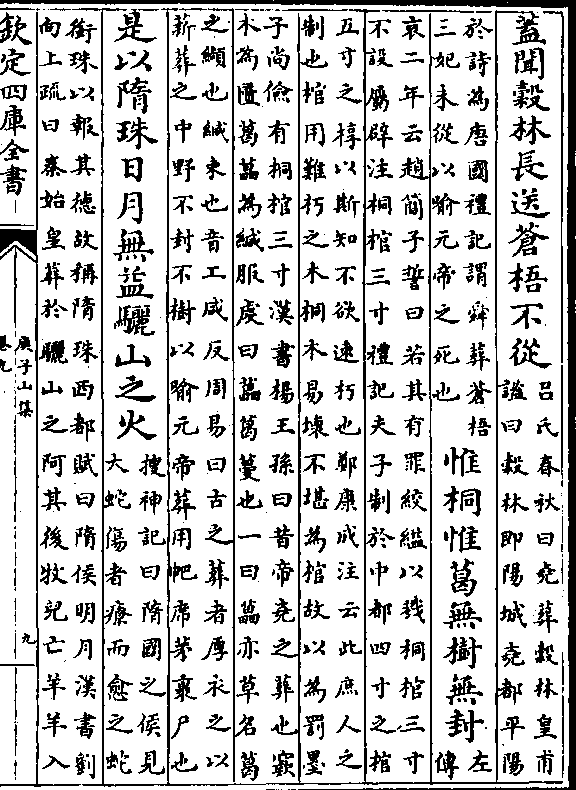 蓋聞穀林長送蒼梧不從呂氏春秋曰堯葬穀林皇甫
謐曰穀林即陽城堯都平陽
於詩為唐國禮記謂舜葬蒼梧
三妃未從以喻元帝之死也惟桐惟葛無樹無封左
傳
哀二年云趙簡子誓曰若其有罪絞縊以戮桐棺三寸
不設屬辟注桐棺三寸禮記夫子制於中都四寸之棺
五寸之椁以斯知不欲速朽也鄭康成注云此庶人之
制也棺用難朽之木桐木易壞不堪為棺故以為罰墨
子尚儉有桐棺三寸漢書楊王孫曰昔帝堯之葬也窾
木為匵葛藟為緘服虔曰藟葛蔓也一曰藟亦草名葛
之纈也緘束也音工咸反周易曰古之葬者厚衣之以
薪葬之中野不封不樹以喻元帝葬用帊席茅裹尸也
是以隋珠日月無益驪山之火搜神記曰隋國之侯見
大蛇傷者療而愈之蛇
銜珠以報其德故稱隋珠西都賦曰隋侯明月漢書劉
向上疏曰秦始皇葬於驪山之阿其後牧兒亡羊羊入
欽定四庫全書
庾子山集
卷九
九